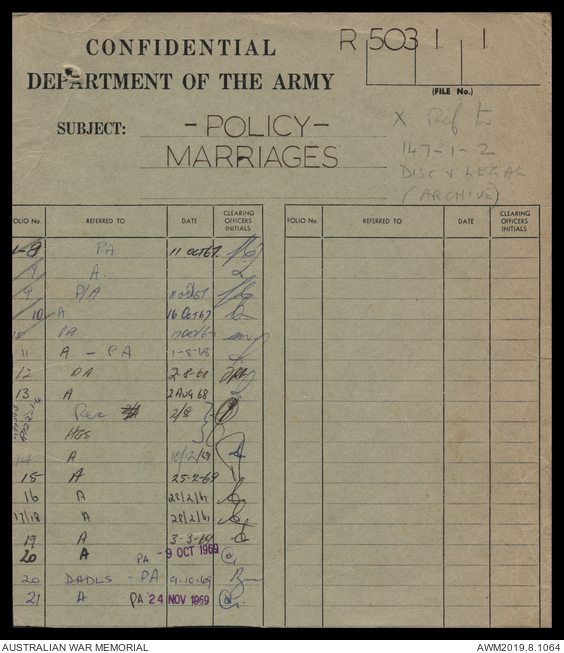 CONFIDENTIAL
DEPARTMENT OF THE ARMY
R 503 1 1
(FILE No.)
SUBJECT: - POLICY -
MARRIAGES
X Ref to
147-1-2
DISC & LEGAL
(ARCHIVE)
FOLIO No. REFERRED TO DATE CLEARING OFFICERS INITIALS FOLIO No. REFERRED TO DATE CLEARING OFFICERS INITIALS
1-8 PA 11 OCT 67
9 A.
9 P/A 11 Oct 67
10 A 16 Oct 67
10 PA
11 A - PA 1-8-68
12 PA 2-8-68
13 A 2 AUG 68
2/8
HQS
14 A 10/12/68
15 A 25-2-69
16 A 28/2/69
17/18 A 28/2/69
19 A 3-3-69
20 A PA - 9 OCT 1969
20 DADLS - PA 9.10.69
21 A PA 24 NOV 1969
AUSTRALIAN WAR MEMORIAL
AWM2019.8.1064